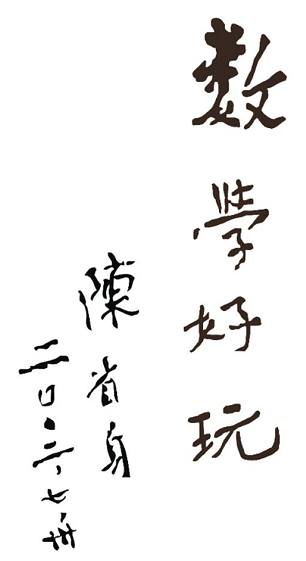 数學好玩
陳省身
二〇〇二、七、廿